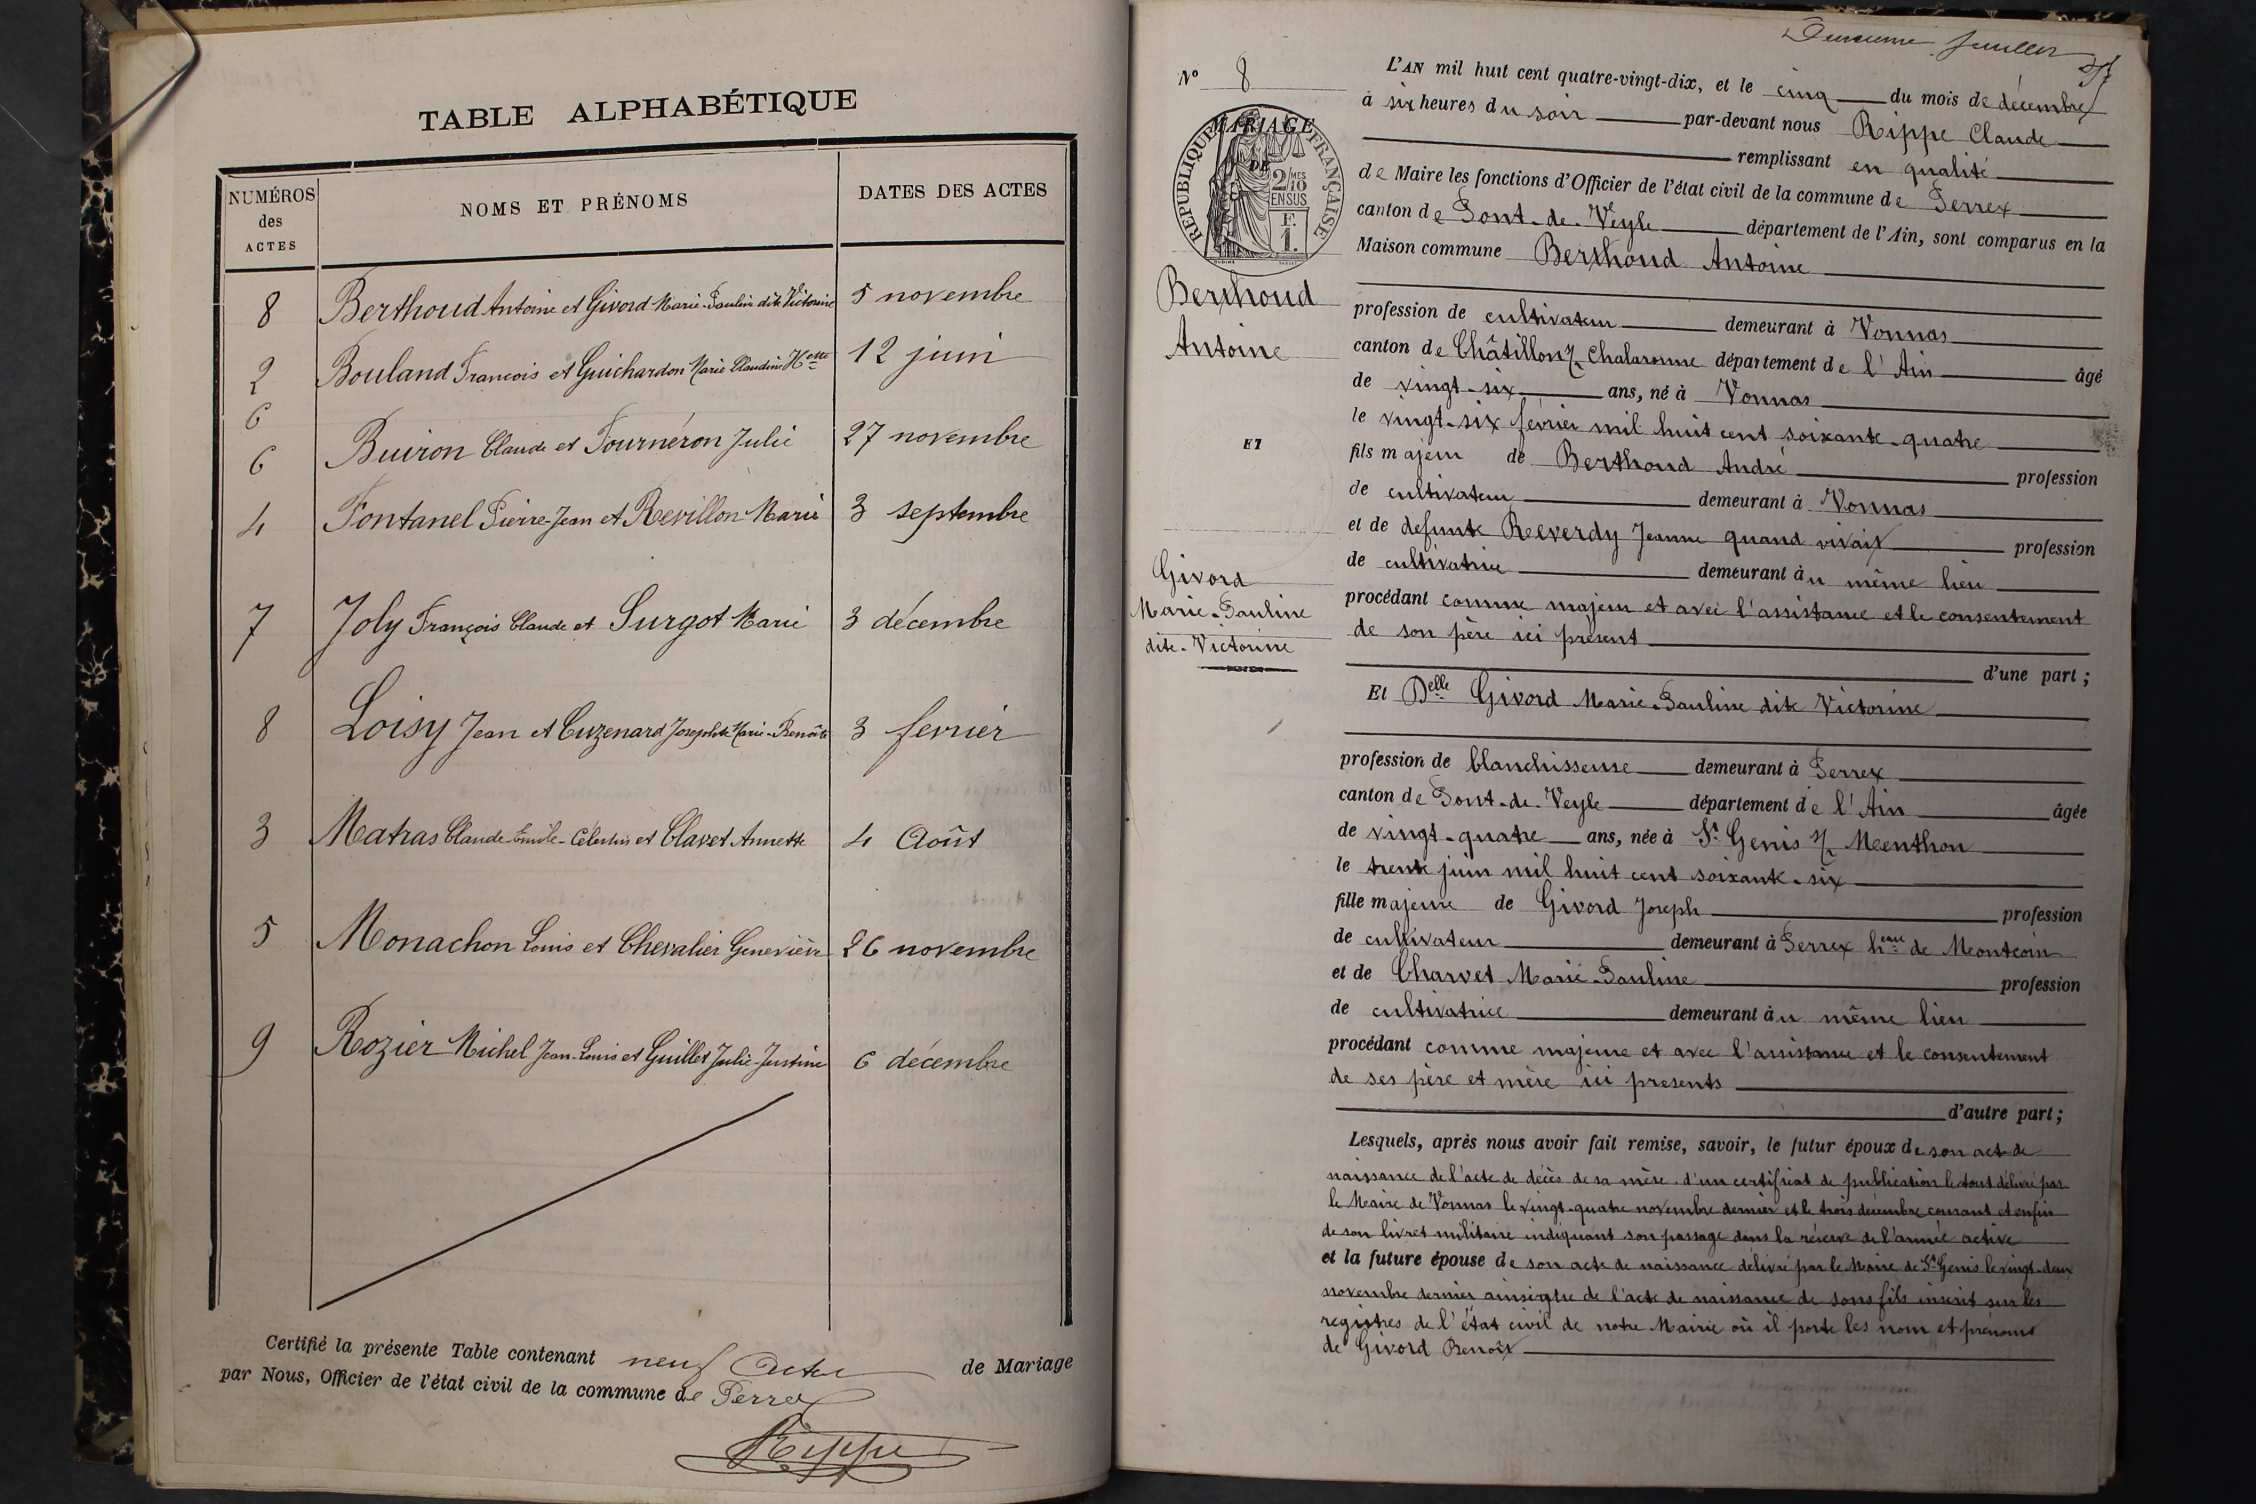 TABLE ALPHABÉTIQUE
NUMÉROS des ACTES
NOMS ET PRÉNOMS
DATES DES ACTES
8 Berthoud Antoine et Givord Marie-Pauline dite Victorine 5 novembre
2 Bouland François et Guichardon Marie Claudine 12 juin
6
6 Buiron Claude et Fournéron Julie 27 novembre
4 Fontanel Pierre-Jean et Revillon Marie 3 septembre
7 Joly François Claude et Surgot Marie 3 décembre
8 Loisy Jean et Cuzenard Josephte Marie-Benoite 3 fevrier
3 Matras Claude-Emile-Célestin et Clavet Annette 4 Août
5 Monachon Louis et Chevalier Geneviève 26 novembre
9 Rozier Michel Jean-Louis et Guillet Julie-Justine 6 décembre
Certifié la présente Table contenant neuf Actes de Mariage
par Nous, Officier de l'état civil de la commune de Perrex
Rippe
feuillet
N° 8
MARIAGE
DE
RÉPUBLIQUE FRANÇAISE
2/MES
10
EN SUS
F.
1.
Berthoud
Antoine
ET
Givord
Marie-Pauline
dite-Victorine
L'AN mil huit cent quatre-vingt-dix, et le cinq du mois de décembre
à six heures du soir par-devant nous Rippe Claude
remplissant en qualité
de Maire les fonctions d'Officier de l'état civil de la commune de Perrex
canton de Pont-de-Veyle département de l'Ain, sont comparus en la
Maison commune Berthoud Antoine
profession de cultivateur demeurant à Vonnas
canton de Châtillon s/ Chalaronne département de l'Ain âgé
de vingt-six ans, né à Vonnas
le vingt-six février mil huit cent soixante-quatre
fils majeur de Berthoud André profession
de cultivateur demeurant à Vonnas
et de defunte Reverdy Jeanne quand vivait profession
de cultivatrice demeurant au même lieu
procédant comme majeur et avec l'assistance et le consentement
de son père ici présent
d'une part ;
Et Delle Givord Marie-Pauline dite Victorine
profession de blanchisseuse demeurant à Perrex
canton de Pont-de-Veyle département de l'Ain âgée
de vingt-quatre ans, née à St Genis s/ Menthon
le trente juin mil huit cent soixante-six
fille majeure de Givord Joseph profession
de cultivateur demeurant à Perrex heau de Montcoin
et de Charvet Marie-Pauline profession
de cultivatrice demeurant au même lieu
procédant comme majeure et avec l'assistance et le consentement
de ses père et mère ici presents
d'autre part ;
Lesquels, après nous avoir fait remise, savoir, le futur époux de son acte de
naissance de l'acte de décès de sa mère d'un certificat de publication le tout délivré par
le Maire de Vonnas le vingt-quatre novembre dernier et le trois décembre courant et enfin
de son livret militaire indiquant son passage dans la réserve de l'armée active
et la future épouse de son acte de naissance délivré par le Maire de St Genis le vingt-deux
novembre dernier ainsi que de l'acte de naissance de son fils inscrit sur les
registres de l'état civil de notre Mairie où il porte les nom et prénoms
de Givord Benoît